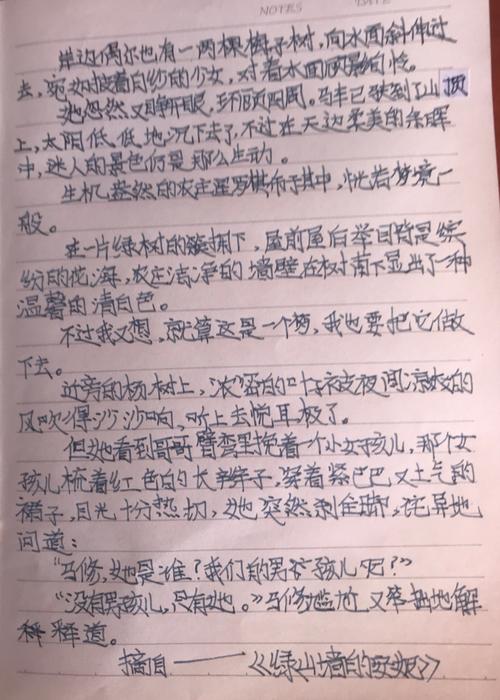 NOTES DATE
岸边偶尔也有一两棵梅子树,向水面斜伸过
去,宛如披着白纱的少女,对着水面顾影自怜。
她忽然又睁开眼,环顾四周。马车已驶到了山顶
上,太阳低低地沉下去了,不过在天边柔美的余晖
中,迷人的景色仍是那么生动。
生机盎然的农庄星罗棋布于其中,恍若梦境一
般。
在一片绿树的簇拥下,屋前屋后举目皆是缤
纷的花海,农庄洁净的墙壁在树荫下显出了一种
温馨的清白色。
不过我又想,就算这是一个梦,我也要把它做
下去。
近旁的杨树上,浓密的叶子被夜间凉爽的
风吹得沙沙响,听上去悦耳极了。
但她看到哥哥臂弯里挽着一个小女孩儿,那个女
孩儿梳着红色的长辫子,穿着紧巴巴又土气的
裙子,目光十分热切,她突然刹住脚,诧异地
问道:
“马修,她是谁?我们的男孩儿呢?”
“没有男孩儿,只有她。”马修尴尬又笨拙地解
释释道。
摘自——《绿山墙的安妮》